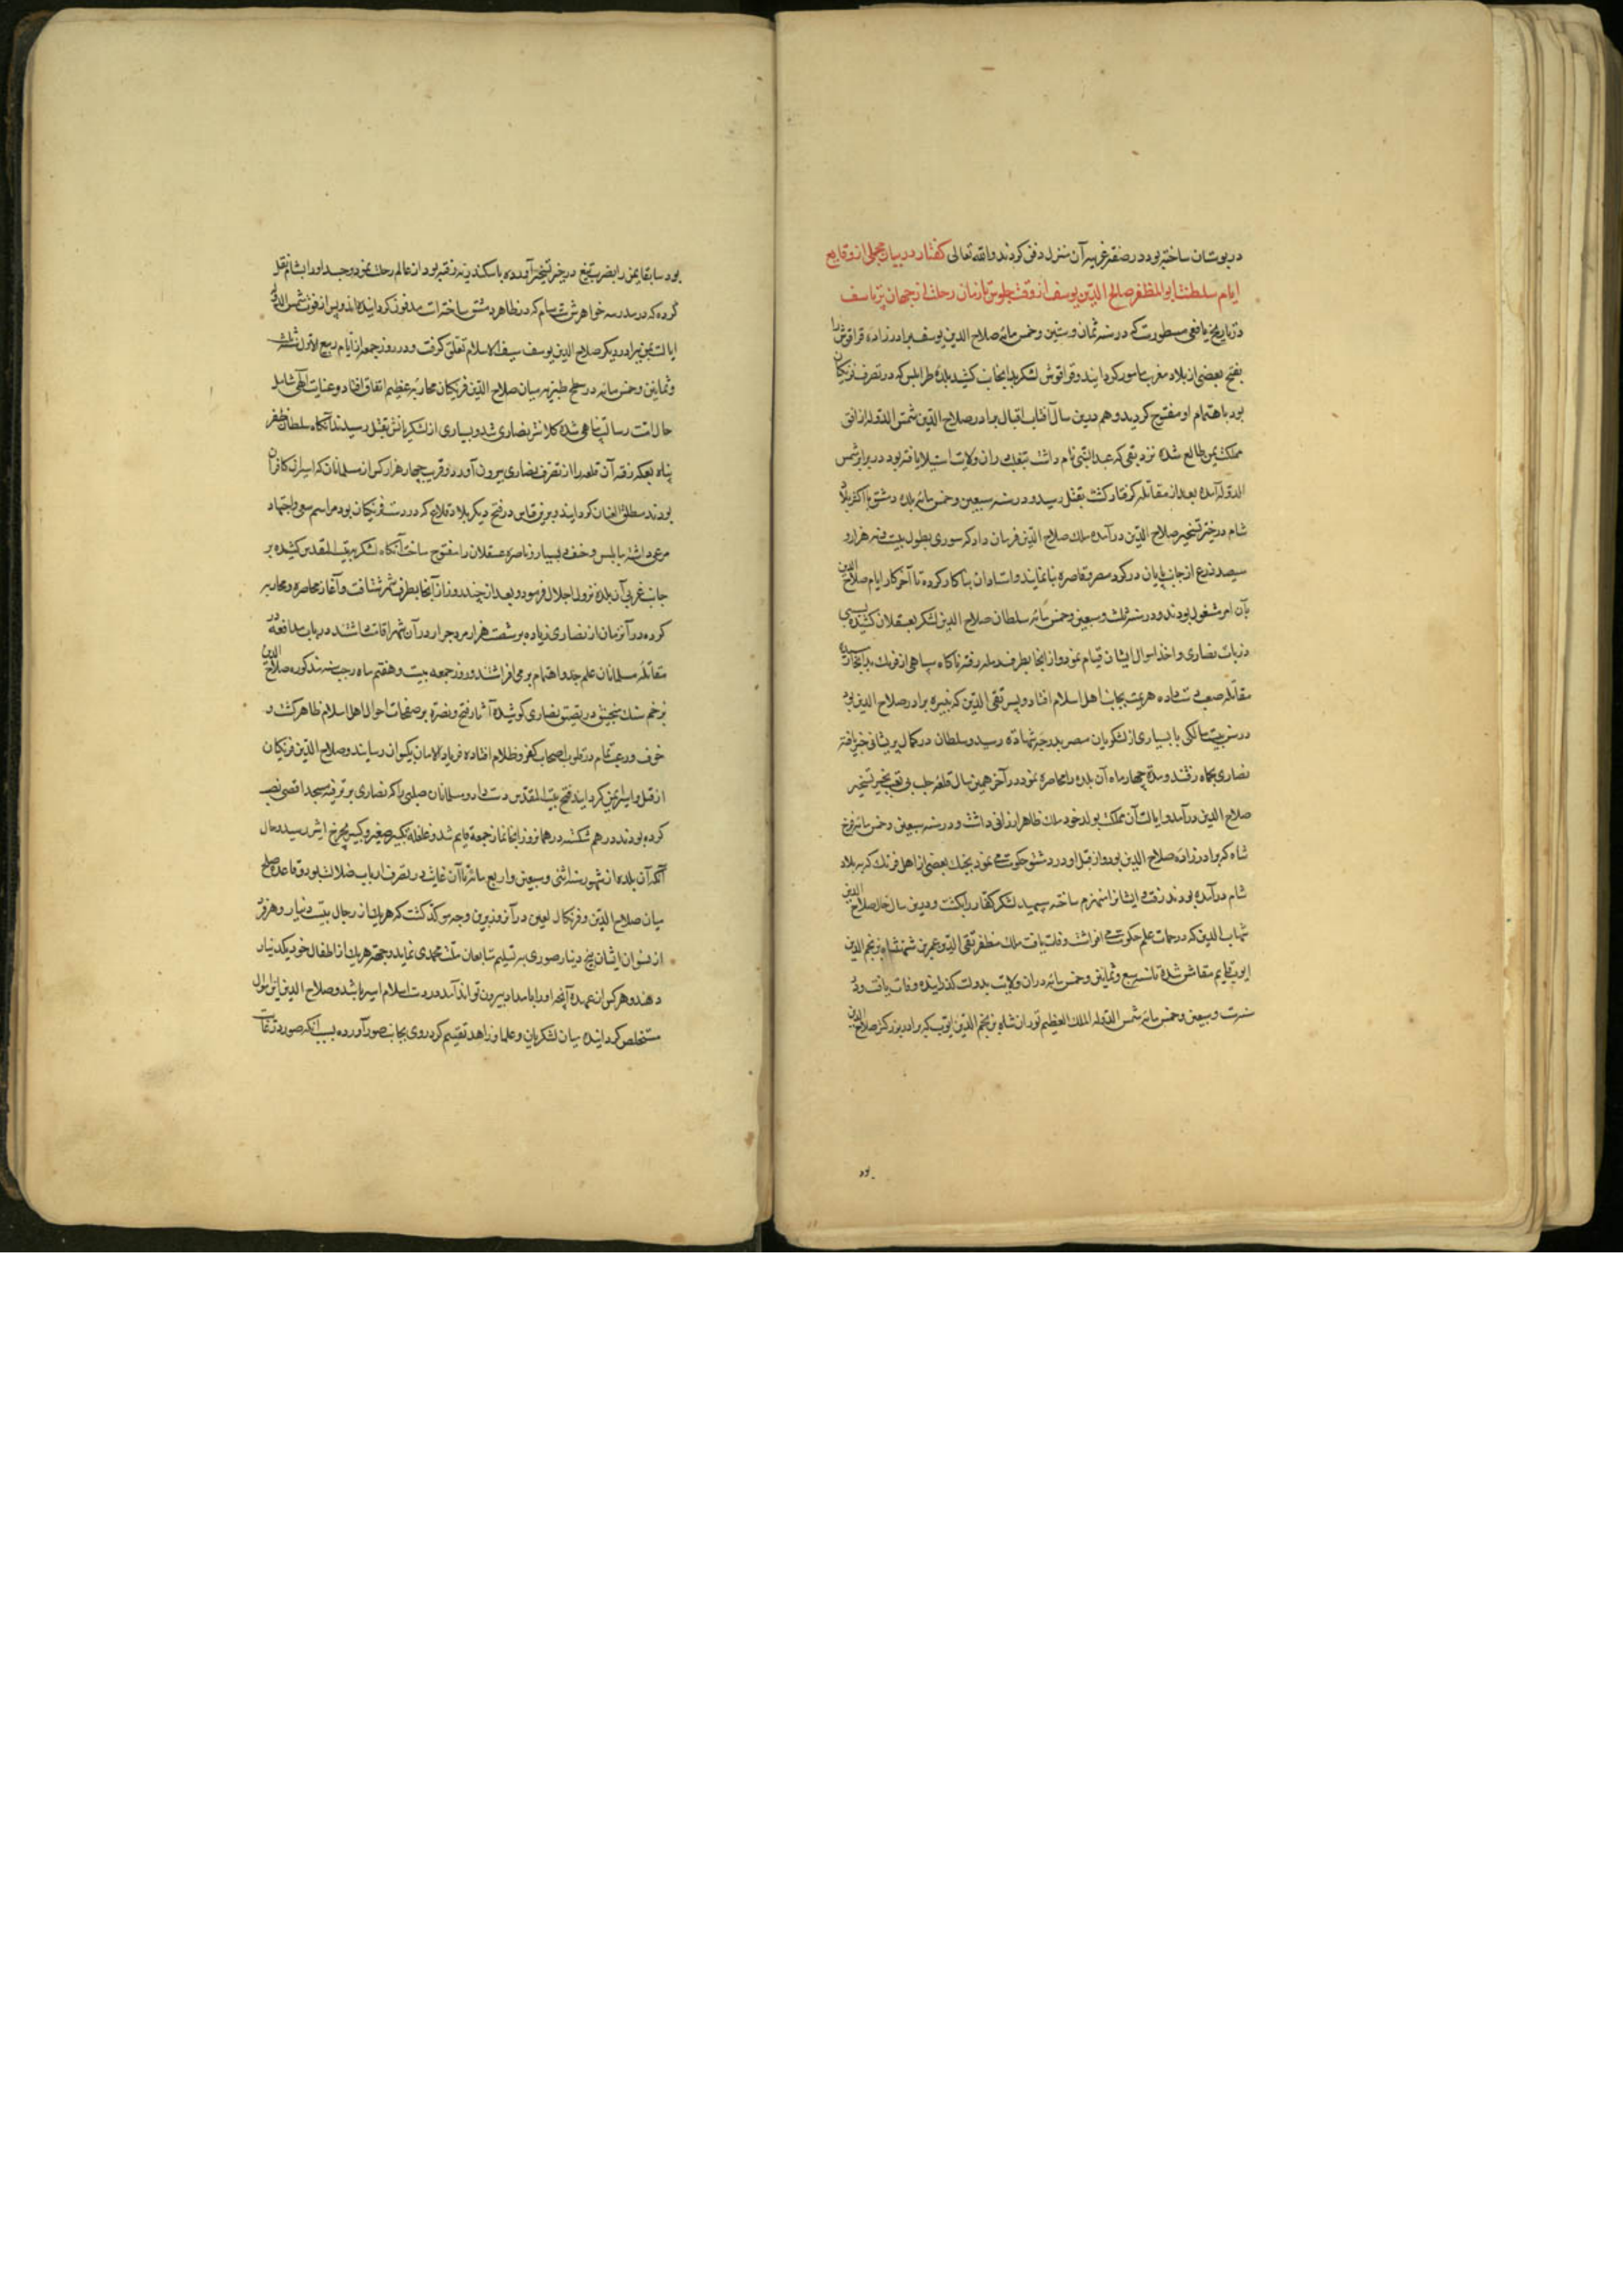 در بوستان ساخته بود در صفه غربیه آن منزل دفن کردند والله تعالی کفتار در بیان مجملی از وقایع
ایام سلطنت ابو المظفر صلاح الدین یوسف از وقت جلوس تا زمان رحلت از جهان پر تاسف
در تاریخ یافعی مسطورست که در سنه ثمان و ستین و خمس مائه صلاح الدین یوسف برادر زاده قراقوش را
بفتح بعضی از بلاد مغرب مامور کردانید و قراقوش لشکر بدانجانب کشید بلده طرابلس که در تصرف فرنکان
بود باهتمام او مفتوح کردید و هم درین سال آفتاب اقبال برادر صلاح الدین شمس الدوله از افق
مملکت یمن طالع شده زندیقی که عبد النبی نام داشت و در ان ولایت استیلا یافته بود در برابر شمس
الدوله آمده بعد از مقاتله کرفتار کشت بقتل رسید و در سنه سبعین و خمس مائه بلده دمشق با اکثر بلاد
شام در حیز تسخیر صلاح الدین در آمده ملک صلاح الدین فرمان داد که سوری بطول بیست و نه هزار و
سیصد ذرع از جانب پایان در کرد مصر و قاهره بنا نمایند و استادان بنا کار کرده تا آخر کار ایام صلاح الدین
بآن امر مشغول بودند و در سنه ثلث و سبعین و خمس مائه سلطان صلاح الدین لشکر بعسقلان کشیده بسبی
ذریات نصاری و اخذ اموال ایشان قیام نمود و از انجا بطرف رمله رفته ناکاه سپاهی از فرنک بدانجا رسیده
مقاتله صعب دست داده هزیمت بجانب اهل اسلام افتاد و پسر تقی الدین که نبیره برادر صلاح الدین بود
در سن بیست سالکی با بسیاری از لشکریان مصر بدرجه شهاده رسید و سلطان در کمال پریشانی خبر یافته
نصاری بحماه رفتند و مدة چهار ماه آن بلده را محاصره نمود در آخر همین سال قلعه حلب بی تعب بحیز تسخیر
صلاح الدین در آمد و ایالت آن مملکت بولد خود ملک ظاهر ارزانی داشت و در سنه سبعین و خمس مائه فرخ
شاه که برادر زاده صلاح الدین بود و از قبل او در دمشق حکومت می نمود بجنک بعضی از اهل فرنک که به بلاد
شام در آمده بودند رفت و ایشانرا منهزم ساخته سپهبد لشکر کفار را بکشت و درین سال خال صلاح الدین
شهاب الدین که در حمات علم حکومت می افراشت وفات یافت ملک مظفر تقی الدین عمر بن شهنشاه بن نجم الدین
ایوب قایم مقامش شده تا سنه سبع و ثمانین و خمس مائه در ان ولایت بدولت کذرانیده وفات یافت و در
سنه ست و سبعین و خمس مائه شمس الدوله الملک المعظم توران شاه بن نجم الدین ایوب که برادر بزرکتر صلاح الدین
بود
بود سابقا یمن را بضرب تیغ در حیز تسخیر آورده باسکندریه رفته بود از عالم رحلت نمود و جسد او را بشام نقل
کرده که در مدرسه خواهرش ست شام که در ظاهر دمشق ساخته است مدفون کردانیده اند و پس از فوت شمس الدوله
ایالت یمن ببرادر دیکر صلاح الدین یوسف سیف الاسلام تعلق کرفت و در روز جمعه از ایام ربیع الاول سنه ثلث
و ثمانین و خمس مائه در سطح طبریه میان صلاح الدین فرنکان محاربه عظیم اتفاق افتاد و عنایت الهی شامل
حال امت رسالت پناهی شده کلانتر نصاری شد و بسیاری از لشکریانش بقتل رسیدند آنکاه سلطان ظفر
پناه بعکه رفته آن قلعه را از تصرف نصاری بیرون آورد و قریب چهار هزار کس از مسلمانان که اسیر ان کافران
بودند مطلق العنان کردانید و برین قیاس در فتح دیکر بلاد و قلاع که در دست فرنکان بود مراسم سعی و اجتهاد
مرعی داشته نابلس و حیف و بیسار و ناصره عسقلان را مفتوح ساخت آنکاه لشکر به بیت المقدس کشیده بر
جانب غربی آن بلده نزول اجلال فرمود و بعد از چند روز از آنجا بطرف شهر شتافت و آغاز محاصره و محاربه
کرده در آنزمان از نصاری زیاده بر شصت هزار مرد جرار در آن شهر اقامت داشتند در باب مدافعه و
مقاتله مسلمانان علم جد و اهتمام بر می افراشتند و روز جمعه بیست و هفتم ماه رجب سنه مذکوره صلاح الدین
بزخم سنک منجنیق در تضیق نصاری کوشیده آثار فتح و نصرة بر صفحات احوال اهل اسلام ظاهر کشت و
خوف و رعب تمام در قلوب اصحاب کفر و ظلام افتاده فریاد الامان بکیوان رسانیدند و صلاح الدین فرنکان
از قتل و اسر ایمن کردانیده فتح بیت المقدس دست داد و مسلمانان صلیبی را که نصاری بر ترفیه مسجد اقصی نصب
کرده بودند در هم شکسته در همانروز انجا نماز جمعه قایم شد و غلغله تکبیر صغیر و کبیر بچرخ اثیر رسید و حال
آنکه آن بلده از شهور سنه اثنی و سبعین و اربع مائه تا آن غایت در تصرف ارباب ضلالت بود و قاعده صلح
میان صلاح الدین و فرنکان لعین در آنروز برین وجه سمت کذشت که هریک از رجال بیست دینار و هر فرد
از نسوان ایشان پنج دینار صوری تسلیم متابعان ملت محمدی نماید و جهة هریک از اطفال خود یکدینار
دهند و هر کس از عهده آنچه او را باید داد بیرون نتواند آمد در دست اسلام اسیر باشد و صلاح الدین این اموال
مستخلص کردانیده میان لشکریان و علما و زهاد تقسیم کرد روی بجانب صور آورده بسبب آنکه صور در غایت